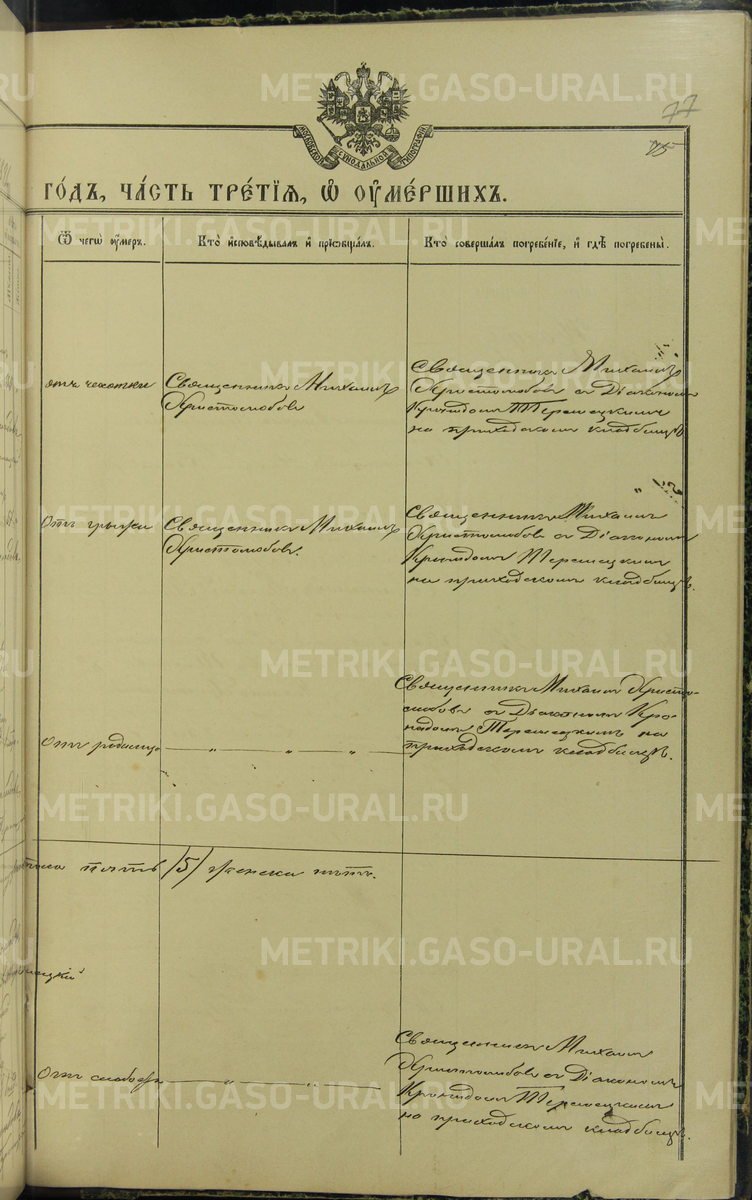 METRIKI.GASO-URAL.RU
77
75
МОСКОВСКОЙ СѴНОДАЛЬНОЙ ТИПОГРАФІИ
го́дъ, ча́сть тре́тїѧ, ѡ҆ ᲂу҆ме́ршихъ.
Ѿ чегѡ̀ ᲂу҆́меръ.
Кто̀ и҆сповѣ́дывалъ и҆ прїѡбща́лъ.
Кто̀ соверша́лъ погребе́нїе, и҆ гдѣ̀ погребены̀.
отъ чахотки
Священникъ Михаилъ
Христолюбовъ
Священникъ Михаилъ
Христолюбовъ съ Діакономъ
Кронидомъ Терешецкимъ
на приходскомъ кладбищѣ
Отъ грыжи
Священникъ Михаилъ
Христолюбовъ.
Священникъ Михаилъ
Христолюбовъ съ Діакономъ
Кронидомъ Терешецкимъ
на приходскомъ кладбищѣ.
METRIKI.GASO-URAL.RU
Отъ родимца
" " "
Священникъ Михаилъ Христо-
любовъ съ Діакономъ Кро-
нидомъ Терешецкимъ на
приходскомъ кладбищѣ.
METRIKI.GASO-URAL.RU
пять /5/ женска пять.
METRIKI.GASO-URAL.RU
Отъ слабости
" "
Священникъ Михаилъ
Христолюбовъ съ Діакономъ
Кронидомъ Терешецкимъ
на приходскомъ кладбищѣ.
METRIKI.GASO-URAL.RU